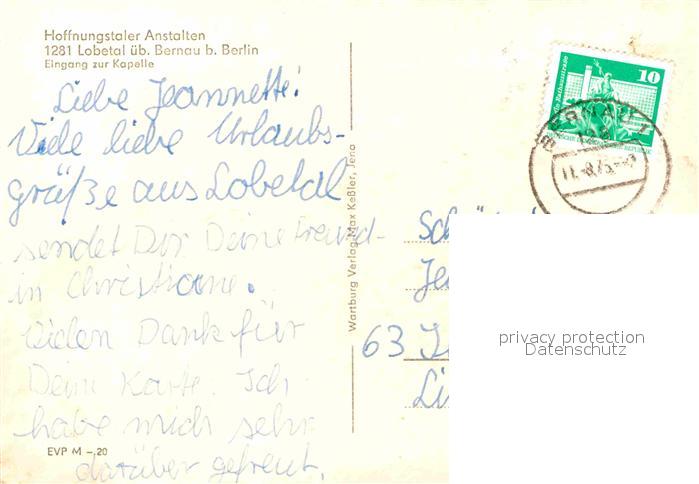 Hoffnungstaler Anstalten
1281 Lobetal üb. Bernau b. Berlin
Eingang zur Kapelle
Liebe Jeannette!
Viele liebe Urlaubs-
grüße aus Lobetal
sendet Dir Deine Freund-
in Christiane.
Vielen Dank für
Deine Karte. Ich
habe mich sehr
darüber gefreut.
EVP M –,20
Wartburg Verlag Max Keßler, Jena
10
BERNAU 1
63
privacy protection
Datenschutz